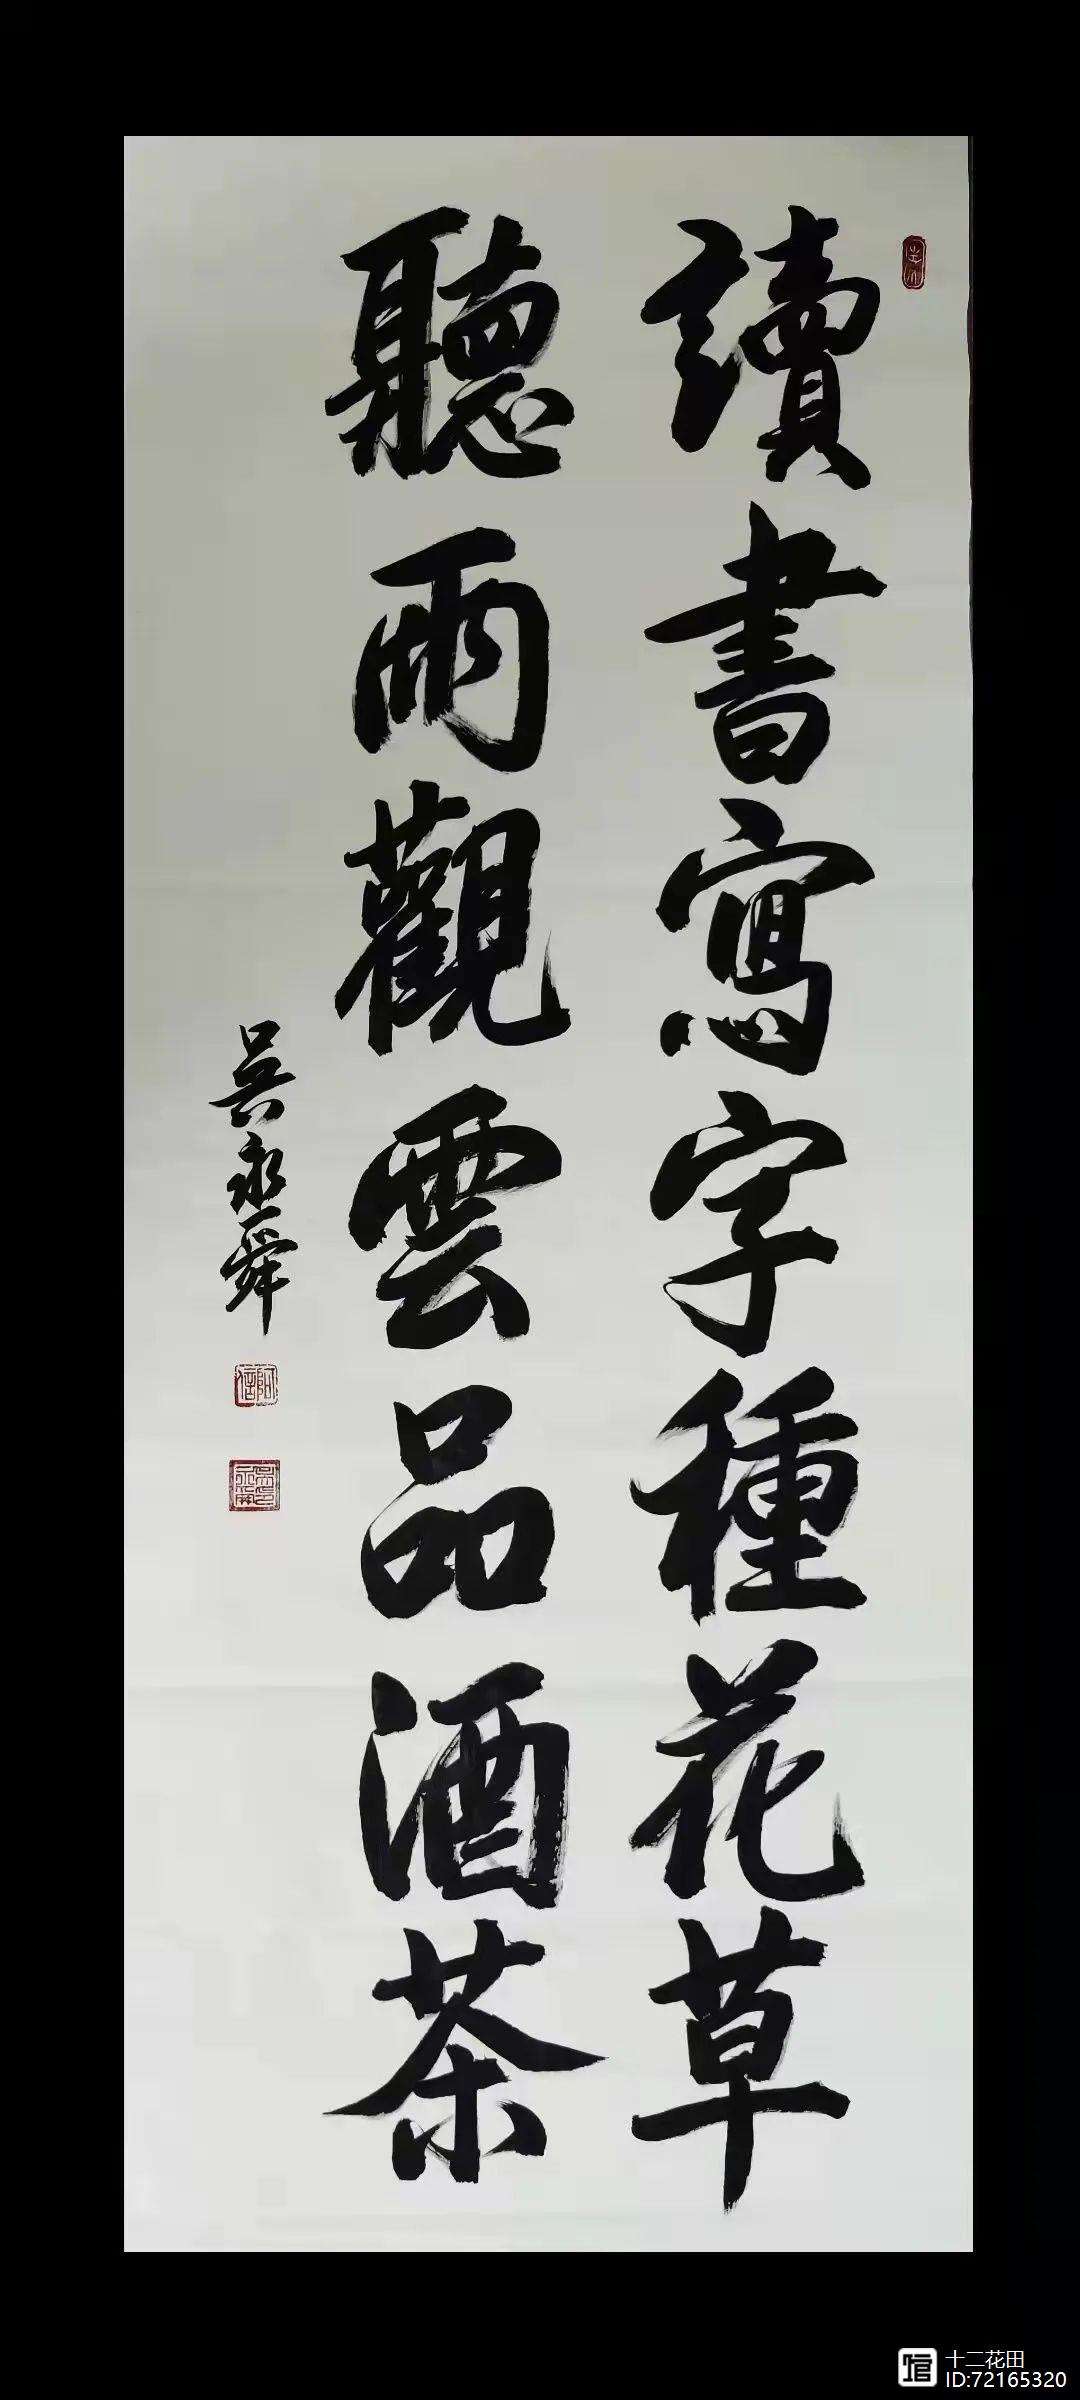 讀書寫字種花草
聽雨觀雲品酒茶
吳永舜
阿信
十二花田
ID:72165320